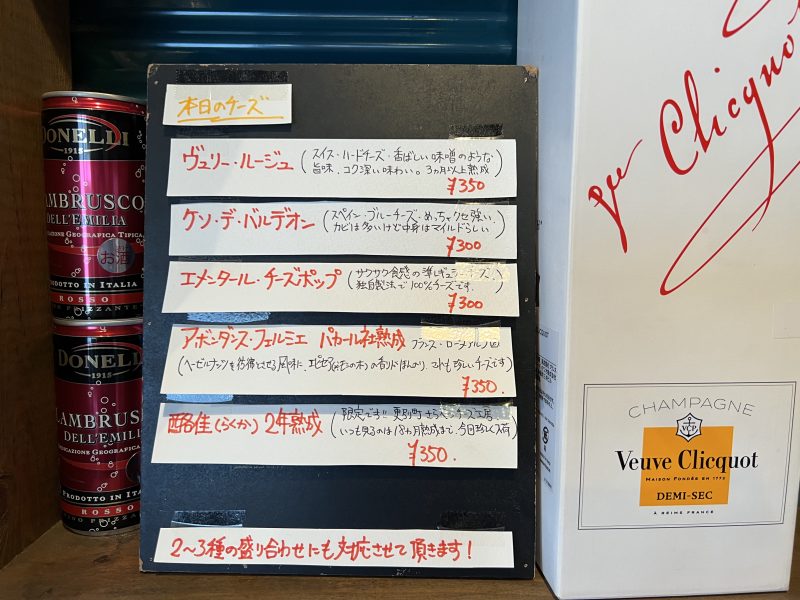 本日のチーズ
ヴュリー・ルージュ
(スイス・ハードチーズ・香ばしい味噌のような
旨味、コク深い味わい。3ヵ月以上熟成)
¥350
ケソ・デ・バルデオン
(スペイン・ブルーチーズ・めっちゃクセ強い
カビは多いけど中身はマイルドらしい)
¥300
エメンタール・チーズポップ
(サクサク食感の
独自製法で100%チーズです。)
¥300
アボンダンス・フェルミエ パカール社熟成
フランス・ローヌアルプ
(ヘーゼルナッツを彷彿とさせる風味に、エピセア(もみの木)の香りがほんのり、とても珍しいチーズです)
¥350.
酪佳(らくか) 2年熟成
(限定です!! 更別町さらべつチーズ工房
いつも見るのは18ヵ月熟成まで、今回珍しく入荷)
¥350.
2~3種の盛り合わせにも対応させて頂きます!
DONELLI
1915
LAMBRUSCO
DELL'EMILIA
INDICAZIONE GEOGRAFICA TIPICA
お酒
PRODOTTO IN ITALIA
ROSSO
VINO FRIZZANTE
DONELLI
1915
LAMBRUSCO
DELL'EMILIA
INDICAZIONE GEOGRAFICA TIPICA
PRODOTTO IN ITALIA
ROSSO
per Clicquot
CHAMPAGNE
VCP
Veuve Clicquot
MAISON FONDÉE EN 1772
DEMI-SEC
À REIMS FRANCE